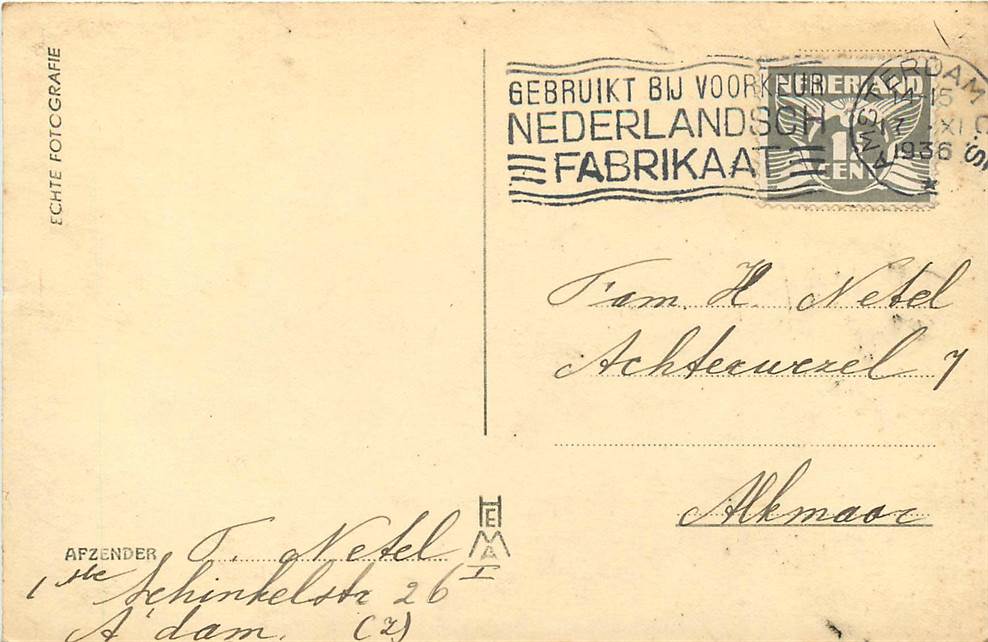 ECHTE FOTOGRAFIE
GEBRUIKT BIJ VOORKEUR
NEDERLANDSCH
FABRIKAAT
NEDERLAND
1½
CENT
AMSTERDAM C.S.
14-15
XI
1936
Fam. H. Netel
Achterwezel 7
Alkmaar
HEMA
AFZENDER T. Netel
1ste Schinkelstr 26
A'dam. (Z)